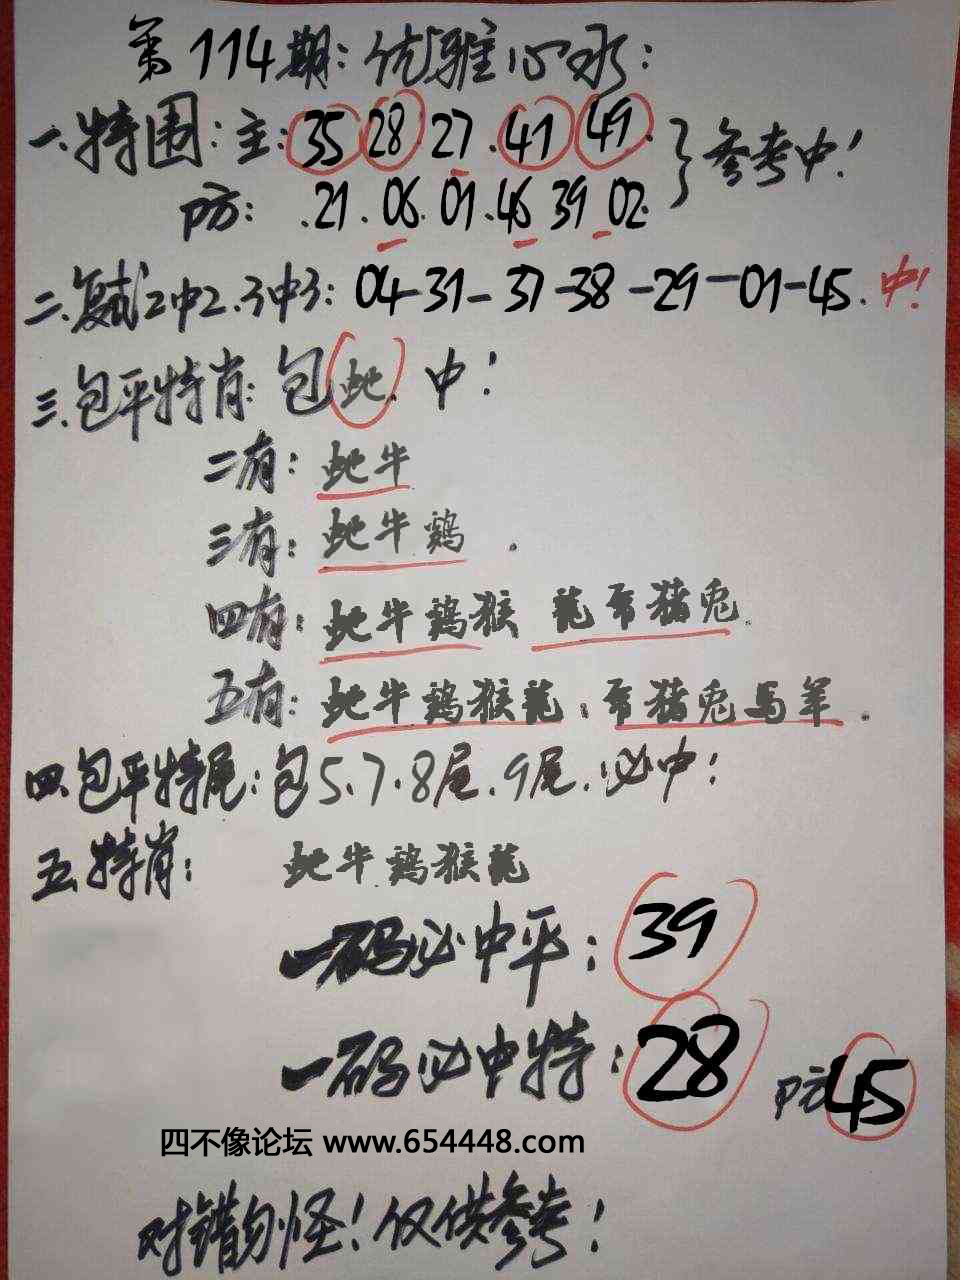 第114期:优雅心水:
一.特围:主:35 28.27.41 49.
防:.21.06.01.46 39 02.
参考中!
二.复式2中2.3中3:04-31-37-38-29-01-45.中!
三.包平特肖:包蛇.中!
二有:蛇牛
三有:蛇牛鸡.
四有:蛇牛鸡猴 龍 猪兔.
五有:蛇牛鸡猴龍. 猪兔马羊.
四.包平特尾:包5.7.8尾.9尾.必中!
五.特肖: 蛇牛鸡猴龍
一码必中平:39
一码必中特:28 防45
四不像论坛 www.654448.com
对错勿怪!仅供参考!